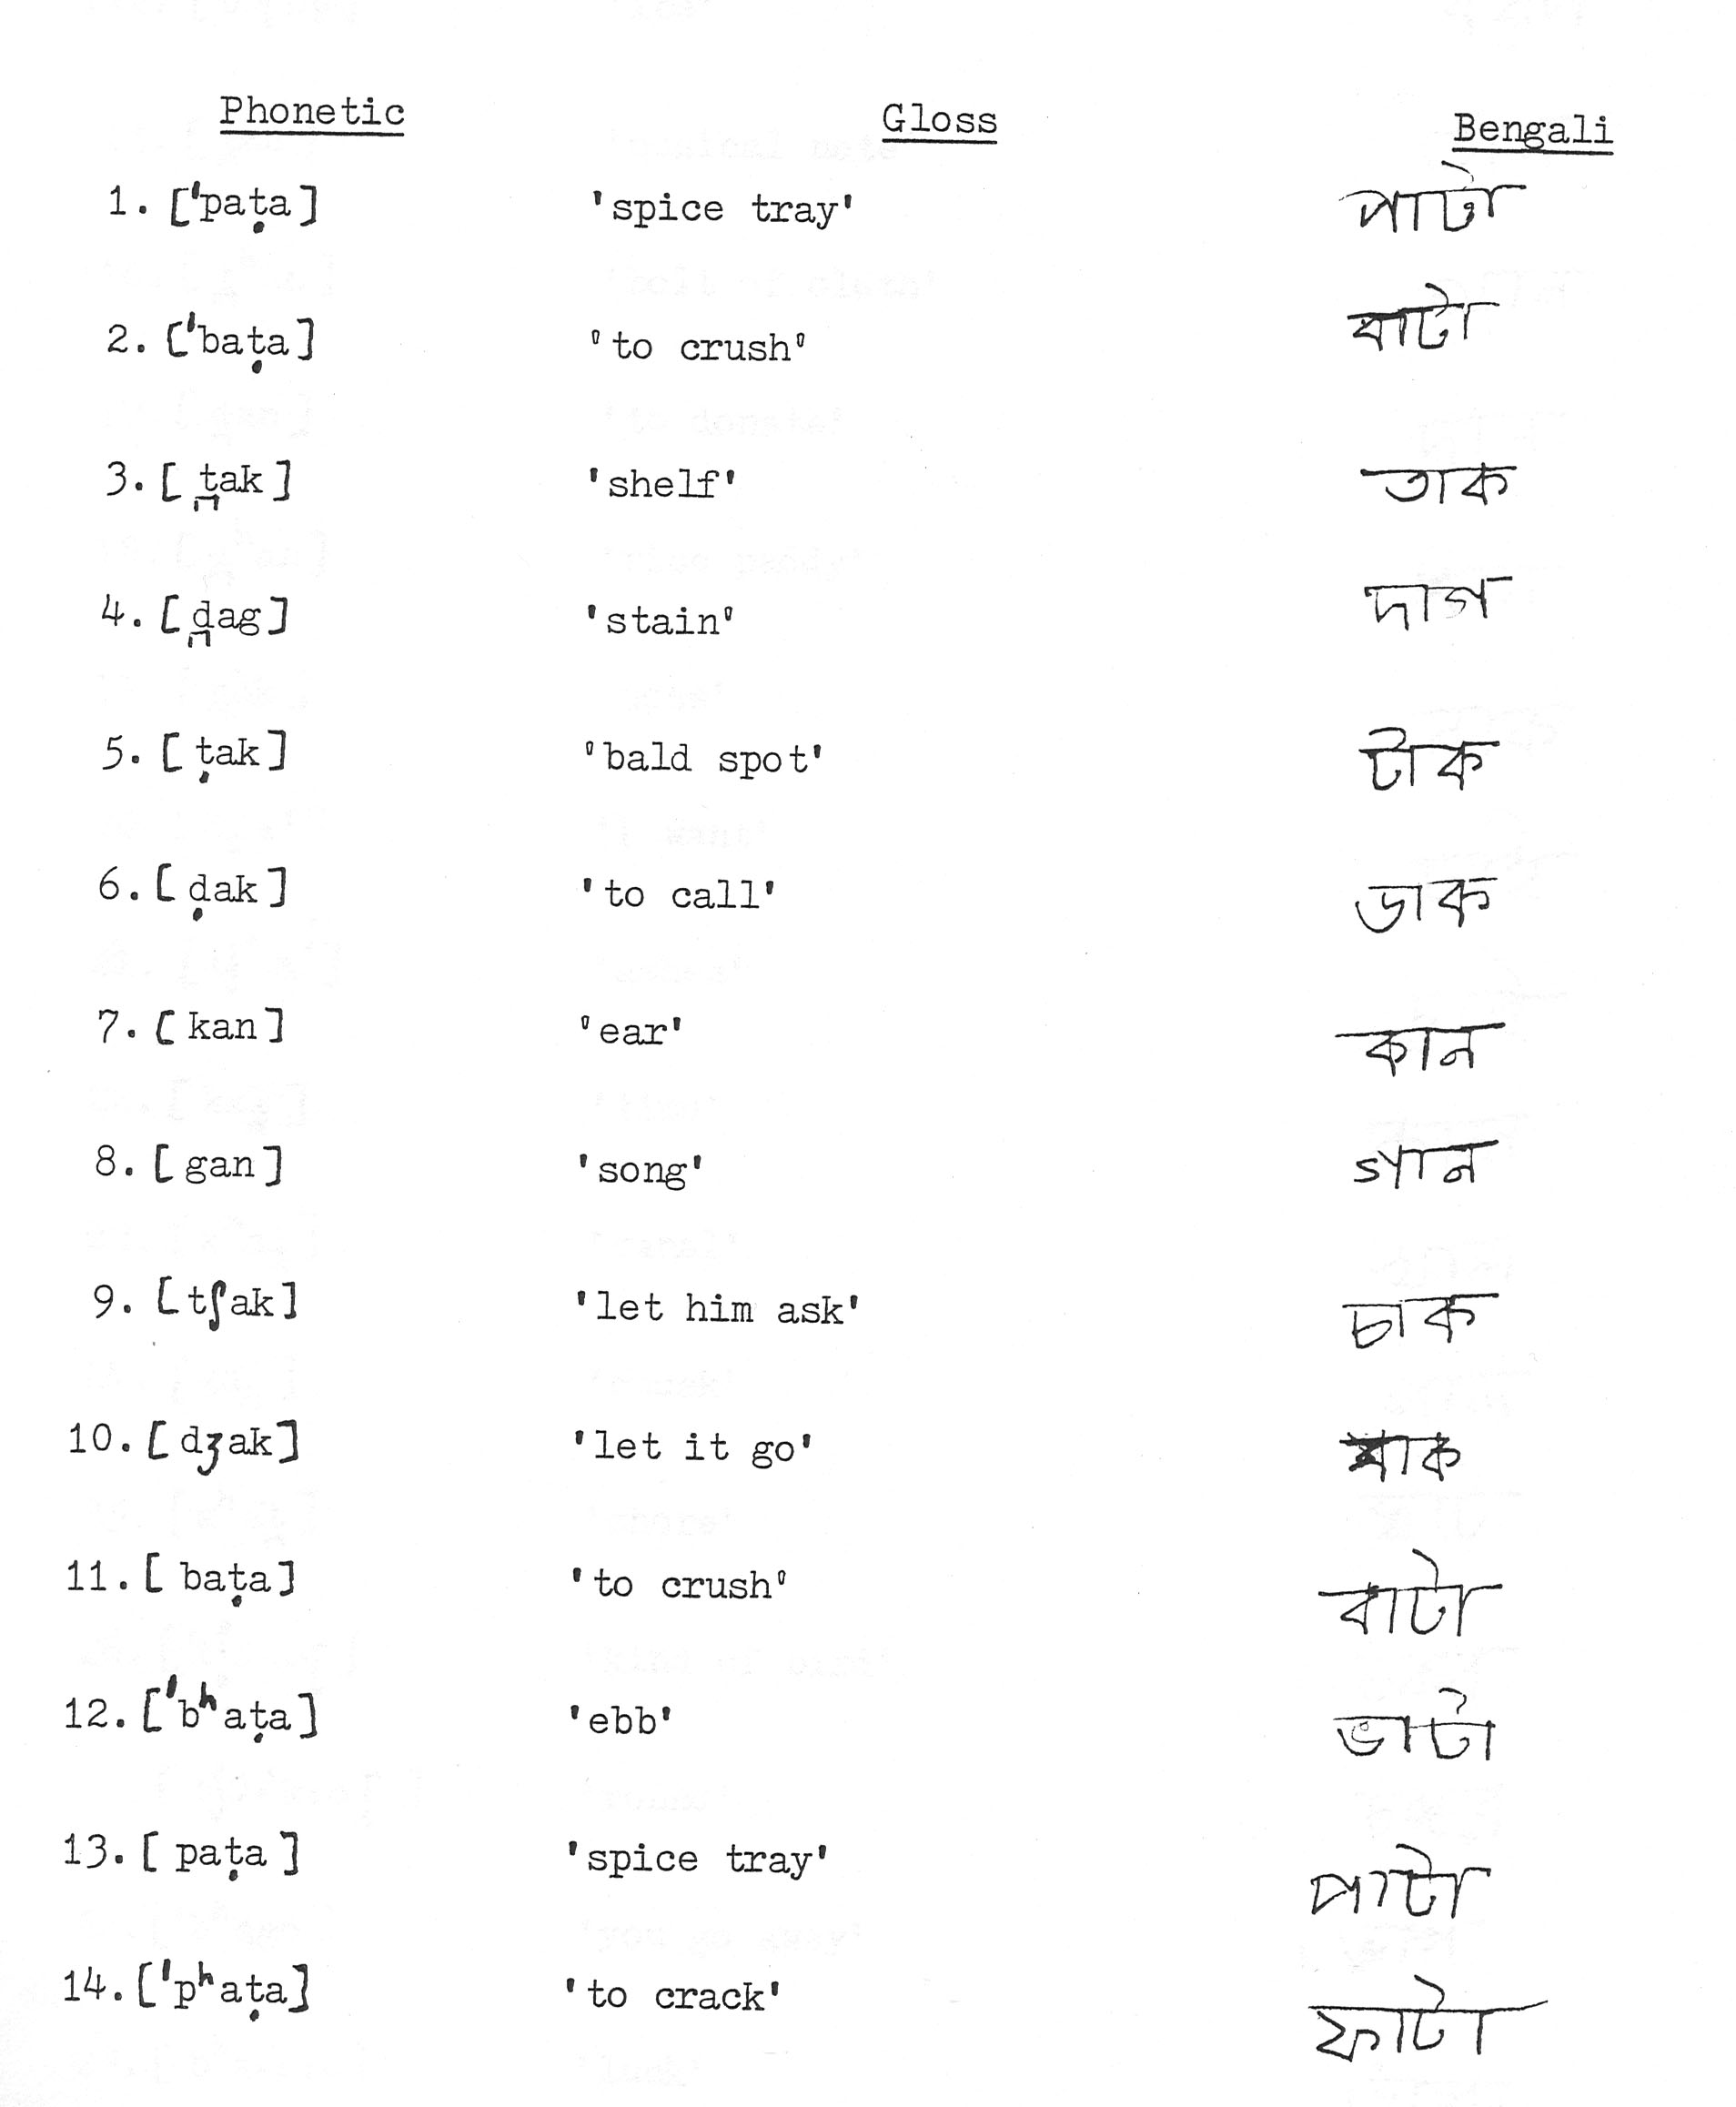 Phonetic Gloss Bengali
1. [ˈpaṭa] 'spice tray' পাটা
2. [ˈbaṭa] 'to crush' বাটা
3. [ t̪ak] 'shelf' তাক
4. [ d̪ag] 'stain' দাগ
5. [ ṭak] 'bald spot' টাক
6. [ ḍak] 'to call' ডাক
7. [ kan] 'ear' কান
8. [ gan] 'song' গান
9. [ tʃak] 'let him ask' চাক
10. [ dʒak] 'let it go' যাক
11. [ baṭa] 'to crush' বাটা
12. [ˈbʰaṭa] 'ebb' ভাটা
13. [ paṭa ] 'spice tray' পাটা
14. [ˈpʰaṭa] 'to crack' ফাটা